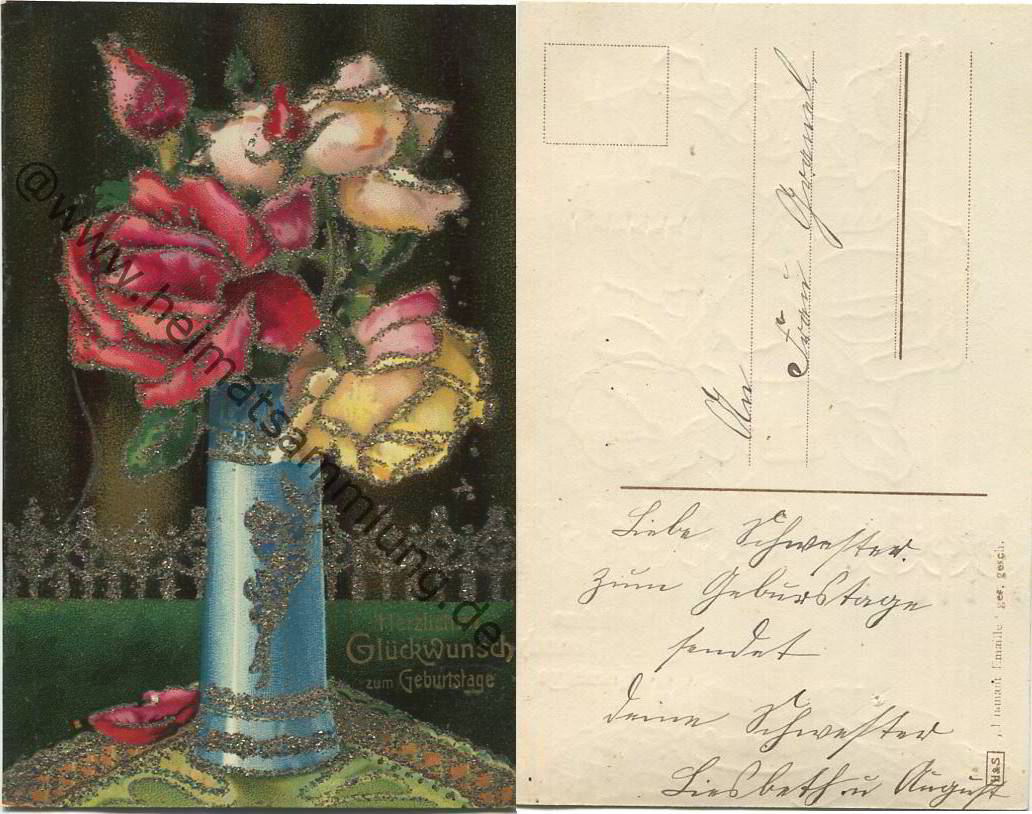 @www.heimatsammlung.de
Herzlich
Glückwunsch
zum Geburtstage
An
Frau
Liebe Schwester.
zum Geburtstage
sendet
deine Schwester
Liesbeth u August
Emaille" ges. gesch.
H&S